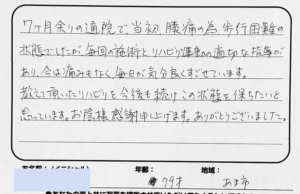 7ヶ月余りの通院で当初、腰痛の為歩行困難の
状態でしたが毎回の施術とリハビリ運動の適切な指導が
あり、今は痛みもなく毎日が気分良くすごせています。
教えて頂いたリハビリを今後も続けこの状態を保ちたいと
思っています。お陰様感謝申し上げます。ありがとうございました。
年齢: 地域:
79才 あま市